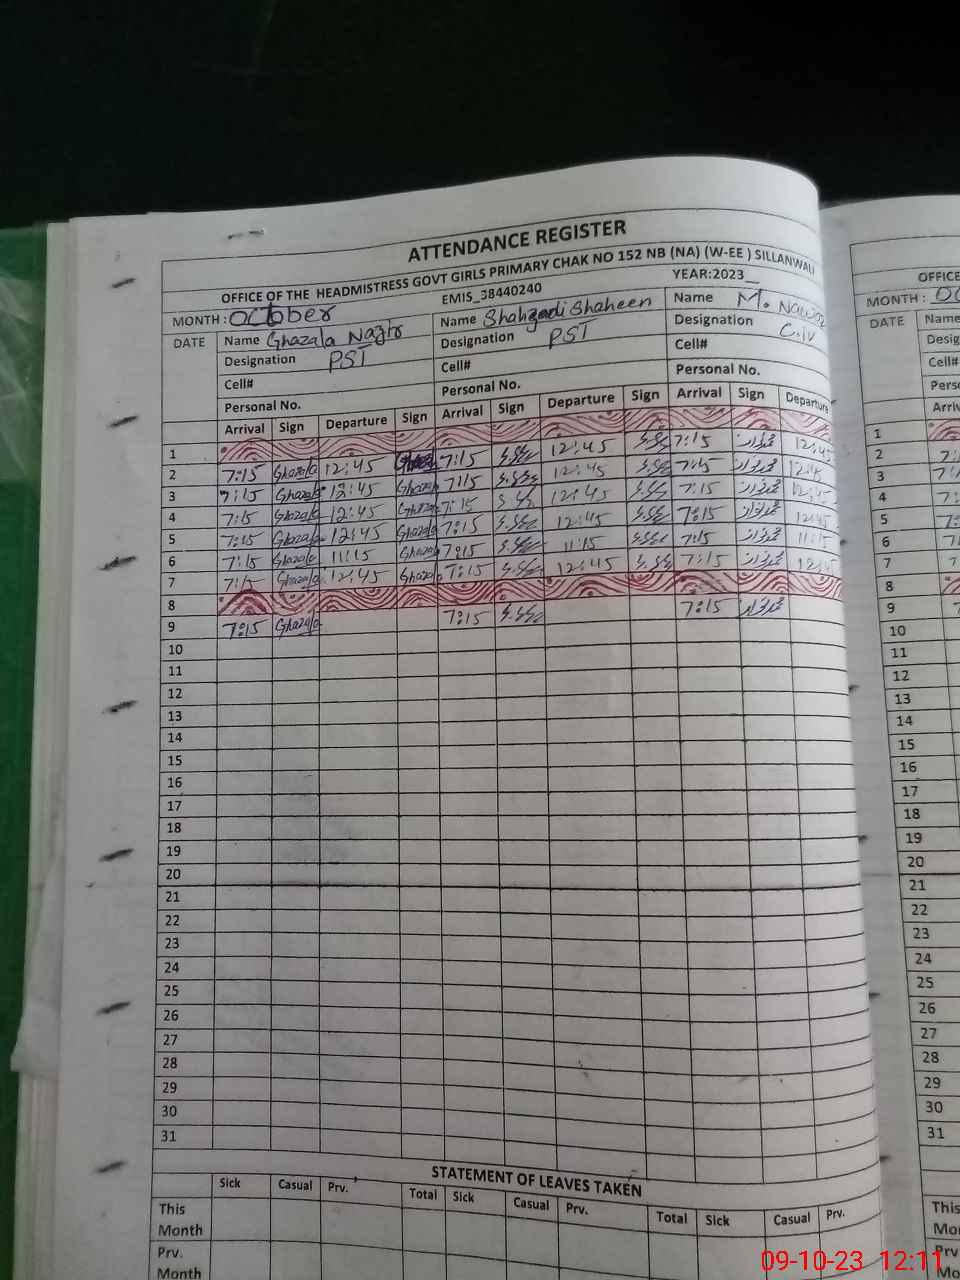 ATTENDANCE REGISTER
OFFICE OF THE HEADMISTRESS GOVT GIRLS PRIMARY CHAK NO 152 NB (NA) (W-EE ) SILLANWALI
MONTH : October EMIS_38440240 YEAR:2023_
DATE Name Ghazala Nazir Name Shahzadi Shaheen Name M. Nawaz
Designation PST Designation PST Designation C.iv
Cell# Cell# Cell#
Personal No. Personal No. Personal No.
Arrival Sign Departure Sign Arrival Sign Departure Sign Arrival Sign Departure
1
2 7:15 Ghazala 12:45 Ghazala 7:15 12:45 7:15 12:45
3 7:15 Ghazala 12:45 Ghazala 7:15 12:45 7:15 12:45
4 7:15 Ghazala 12:45 Ghazala 7:15 12:45 7:15 12:45
5 7:15 Ghazala 12:45 Ghazala 7:15 12:45 7:15 12:45
6 7:15 Ghazala 11:15 Ghazala 7:15 11:15 7:15 11:15
7 7:15 Ghazala 12:45 Ghazala 7:15 12:45 7:15 12:45
8
9 7:15 Ghazala 7:15 7:15
10
11
12
13
14
15
16
17
18
19
20
21
22
23
24
25
26
27
28
29
30
31
STATEMENT OF LEAVES TAKEN
Sick Casual Prv. Total Sick Casual Prv. Total Sick Casual Prv.
This
Month
Prv.
Month
OFFICE
MONTH :
DATE Name
Cell#
1
2
3
4
5
6
7
8
9
10
11
12
13
14
15
16
17
18
19
20
21
22
23
24
25
26
27
28
29
30
31
This
Prv
09-10-23 12:11